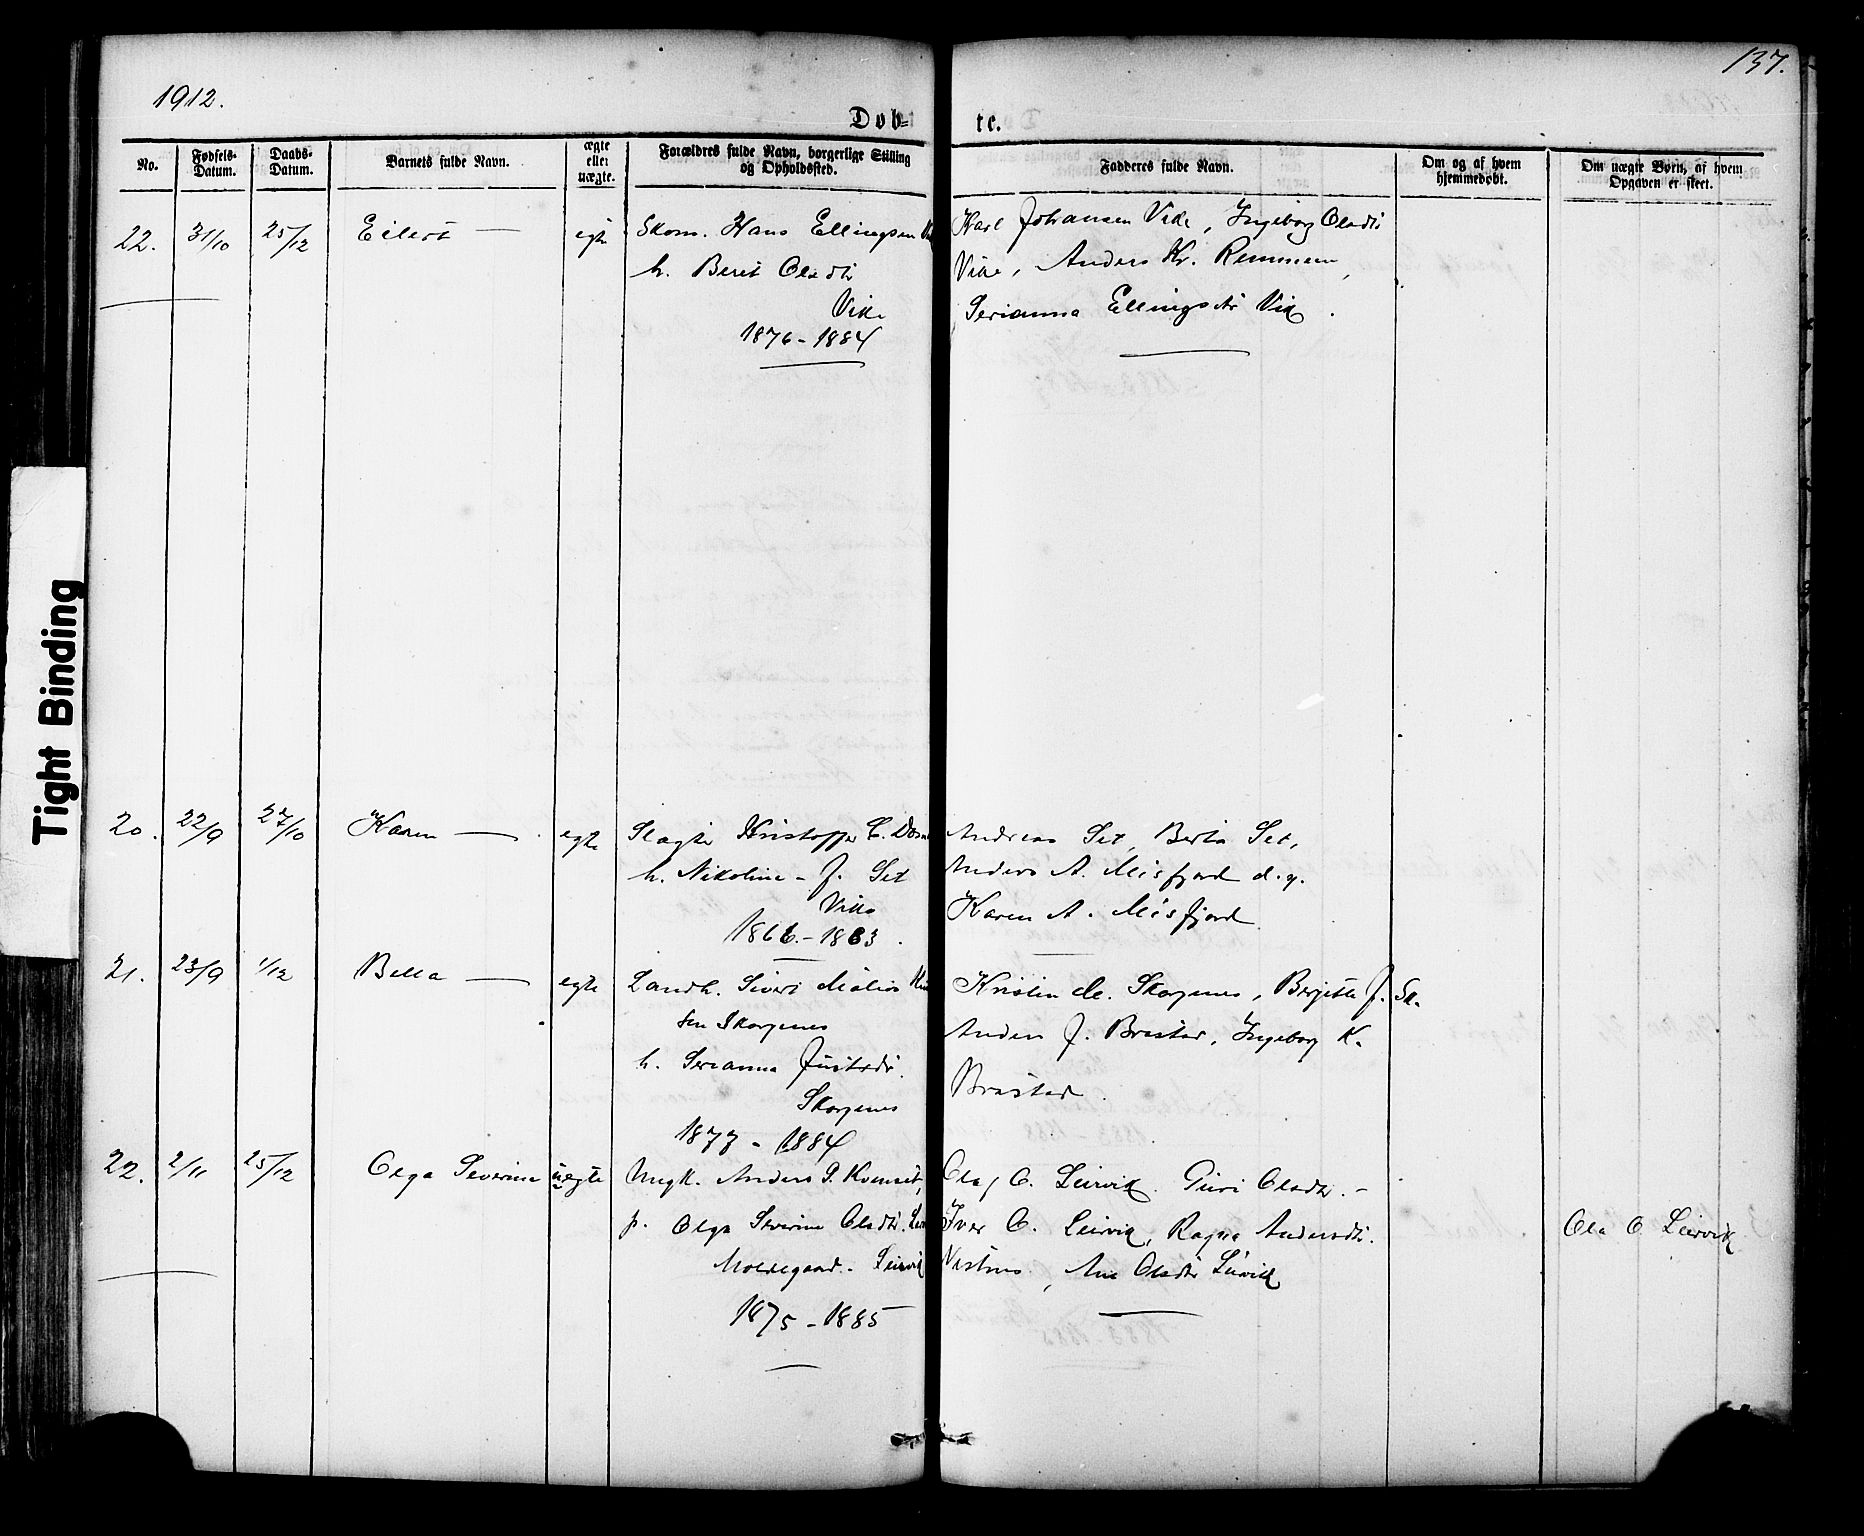 1912.
137.
Døb-
te.
No.
Fødsels-
Datum.
Daabs-
Datum.
Barnets fulde Navn.
ægte
eller
uægte.
Forældres fulde Navn, borgerlige Stilling
og Opholdssted.
Fadderes fulde Navn.
Om og af hvem
hjemmedøbt.
Om uægte Børn, af hvem
Opgaven er skeet.
22. 31/10 25/12 Eilert — egte Skom. Hans Ellingsen
h. Berit Olsdtr
Vik.
1876 - 1884
Karl Johansen Vike, Ingeborg Olsdtr
Vike, Anders Kr. Remmem,
Serianna Ellingsdtr Vik.
20. 22/9 27/10 Karen — egte Kristoffer C.
h. Nikoline - J. Set
Vike
1866. - 1863.
Andreas Set, Berta Set,
Anders A. Misfjord d.y.
Karen A. Misfjord
21. 23/9 1/12 Bella — egte Landh. Sivert
sen Skorgenes
h. Serianna Justsdtr.
Skorgenes
1877 - 1884
Kristen M. Skorgenes, Bergitte J. Sk.
Anders J. Brastad, Ingeborg K.
Brastad.
22. 2/11 25/12 Olga Severine uegte Ungk. Anders P.
p. Olga Severine Olsdtr.
Moldegaard. Leirvik
1875 - 1885
Olaf O. Leirvik. Guri Olsdtr. -
Iver O. Leirvik, Ragna Andersdtr.
Vestnes, Ane Olsdtr Leirvik
Ola O Leirvik
Tight Binding